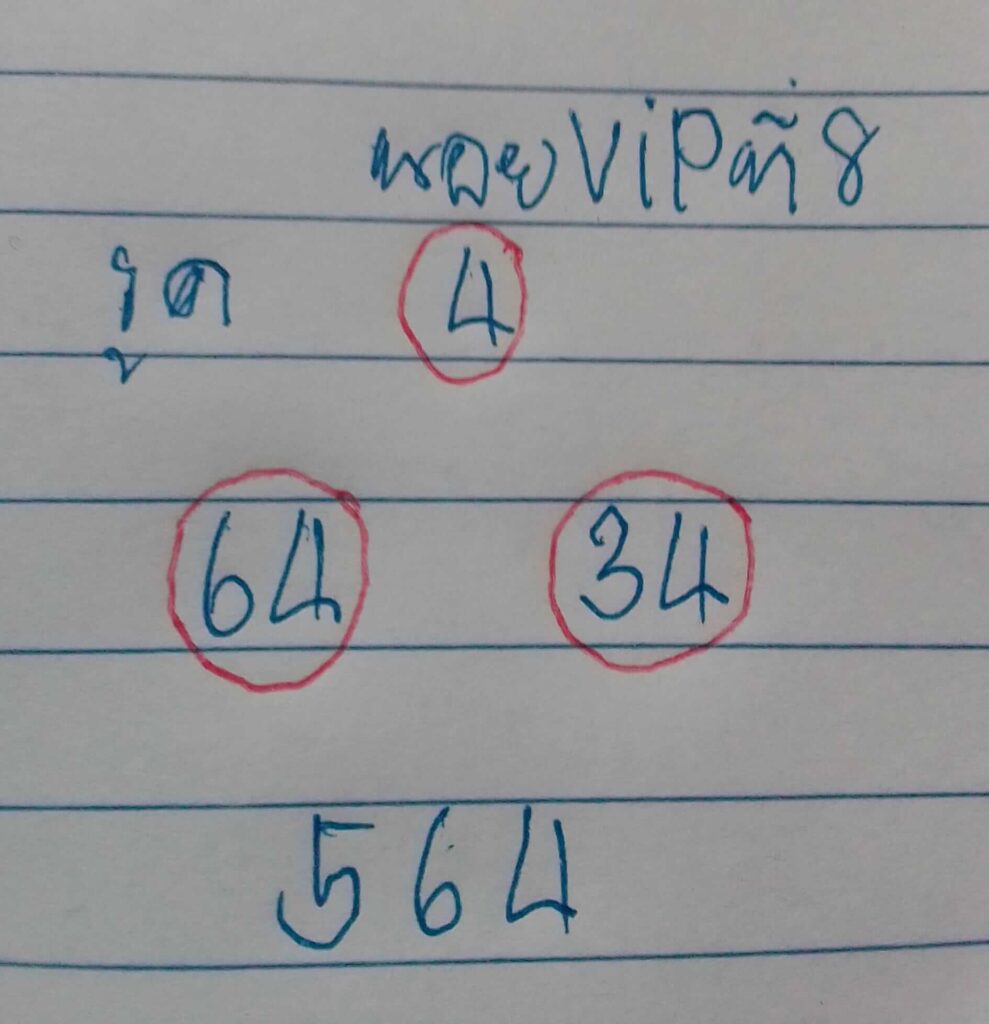 หวยViPที่8
รูด 4
64 34
564